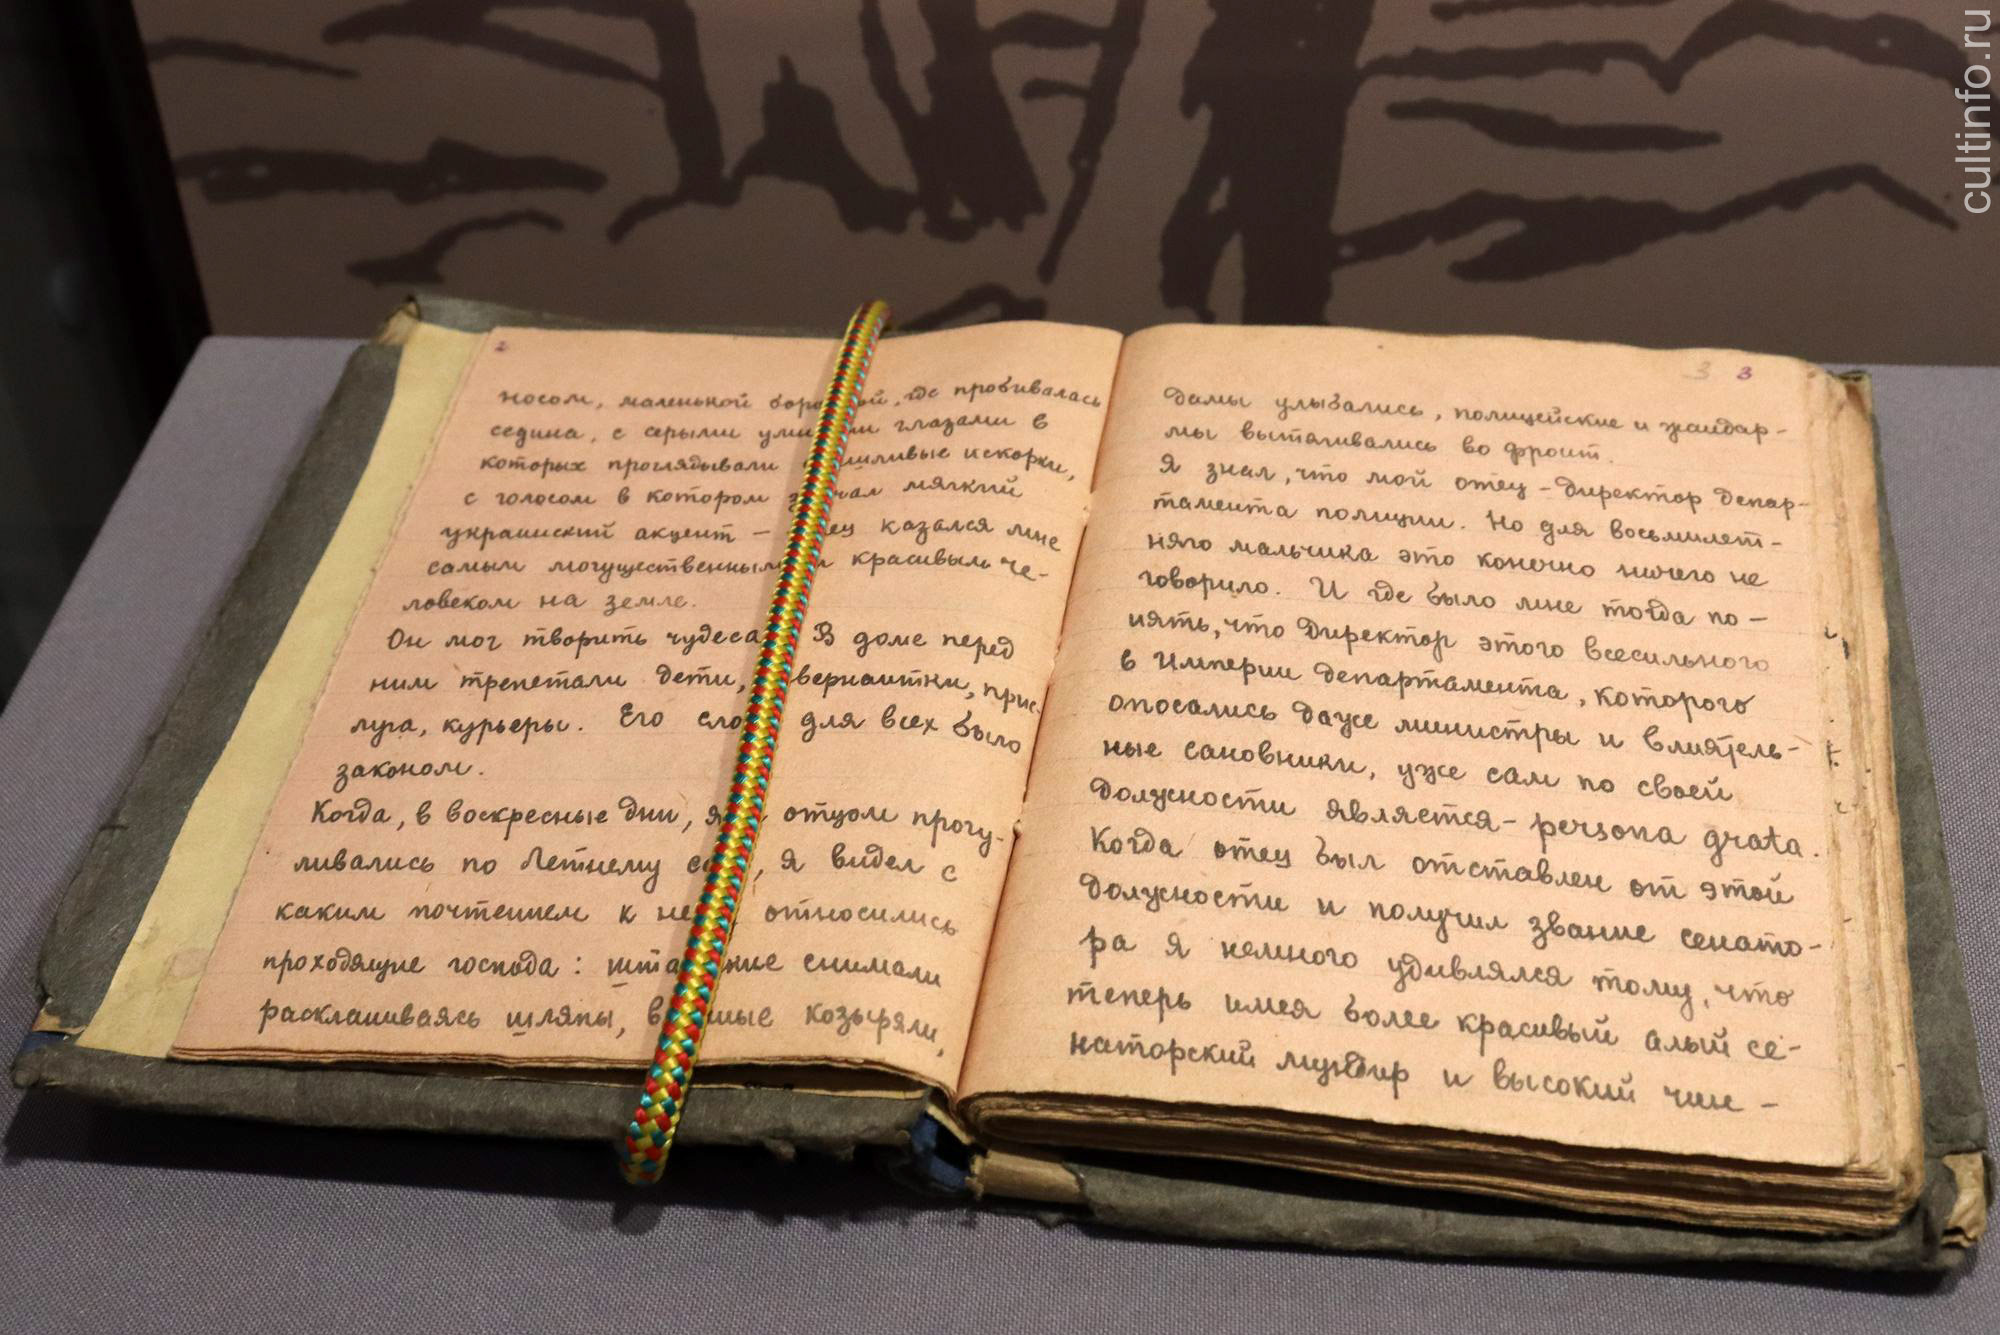 2
носом, маленькой бор ой, где пробивалась
седина, с серыми умн ми глазами в
которых проглядывали шливые искорки,
с голосом в котором з чал мягкий
украинский акцент – ец казался мне
самым могущественным и красивым че-
ловеком на земле.
Он мог творить чудеса В доме перед
ним трепетали дети, вернантки, прис-
луга, курьеры. Его сло для всех было
законом.
Когда, в воскресные дни, я отцом прогу-
ливались по Летнему са , я видел с
каким почтением к не относились
проходящие господа: шта кие снимали
раскланиваясь шляпы, в ные козыряли,
3 3
дамы улыбались, полицейские и жандар-
мы вытягивались во фронт.
Я знал, что мой отец – директор депар-
тамента полиции. Но для восьмилет-
него мальчика это конечно ничего не
говорило. И где было мне тогда по-
нять, что директор этого всесильного
в Империи департамента, которого
опосались даже министры и влиятель-
ные сановники, уже сам по своей
должности является – persona grata.
Когда отец был отставлен от этой
должности и получил звание сенато-
ра я немного удивлялся тому, что
теперь имея более красивый алый се-
наторский мундир и высокий чин –
cultinfo.ru